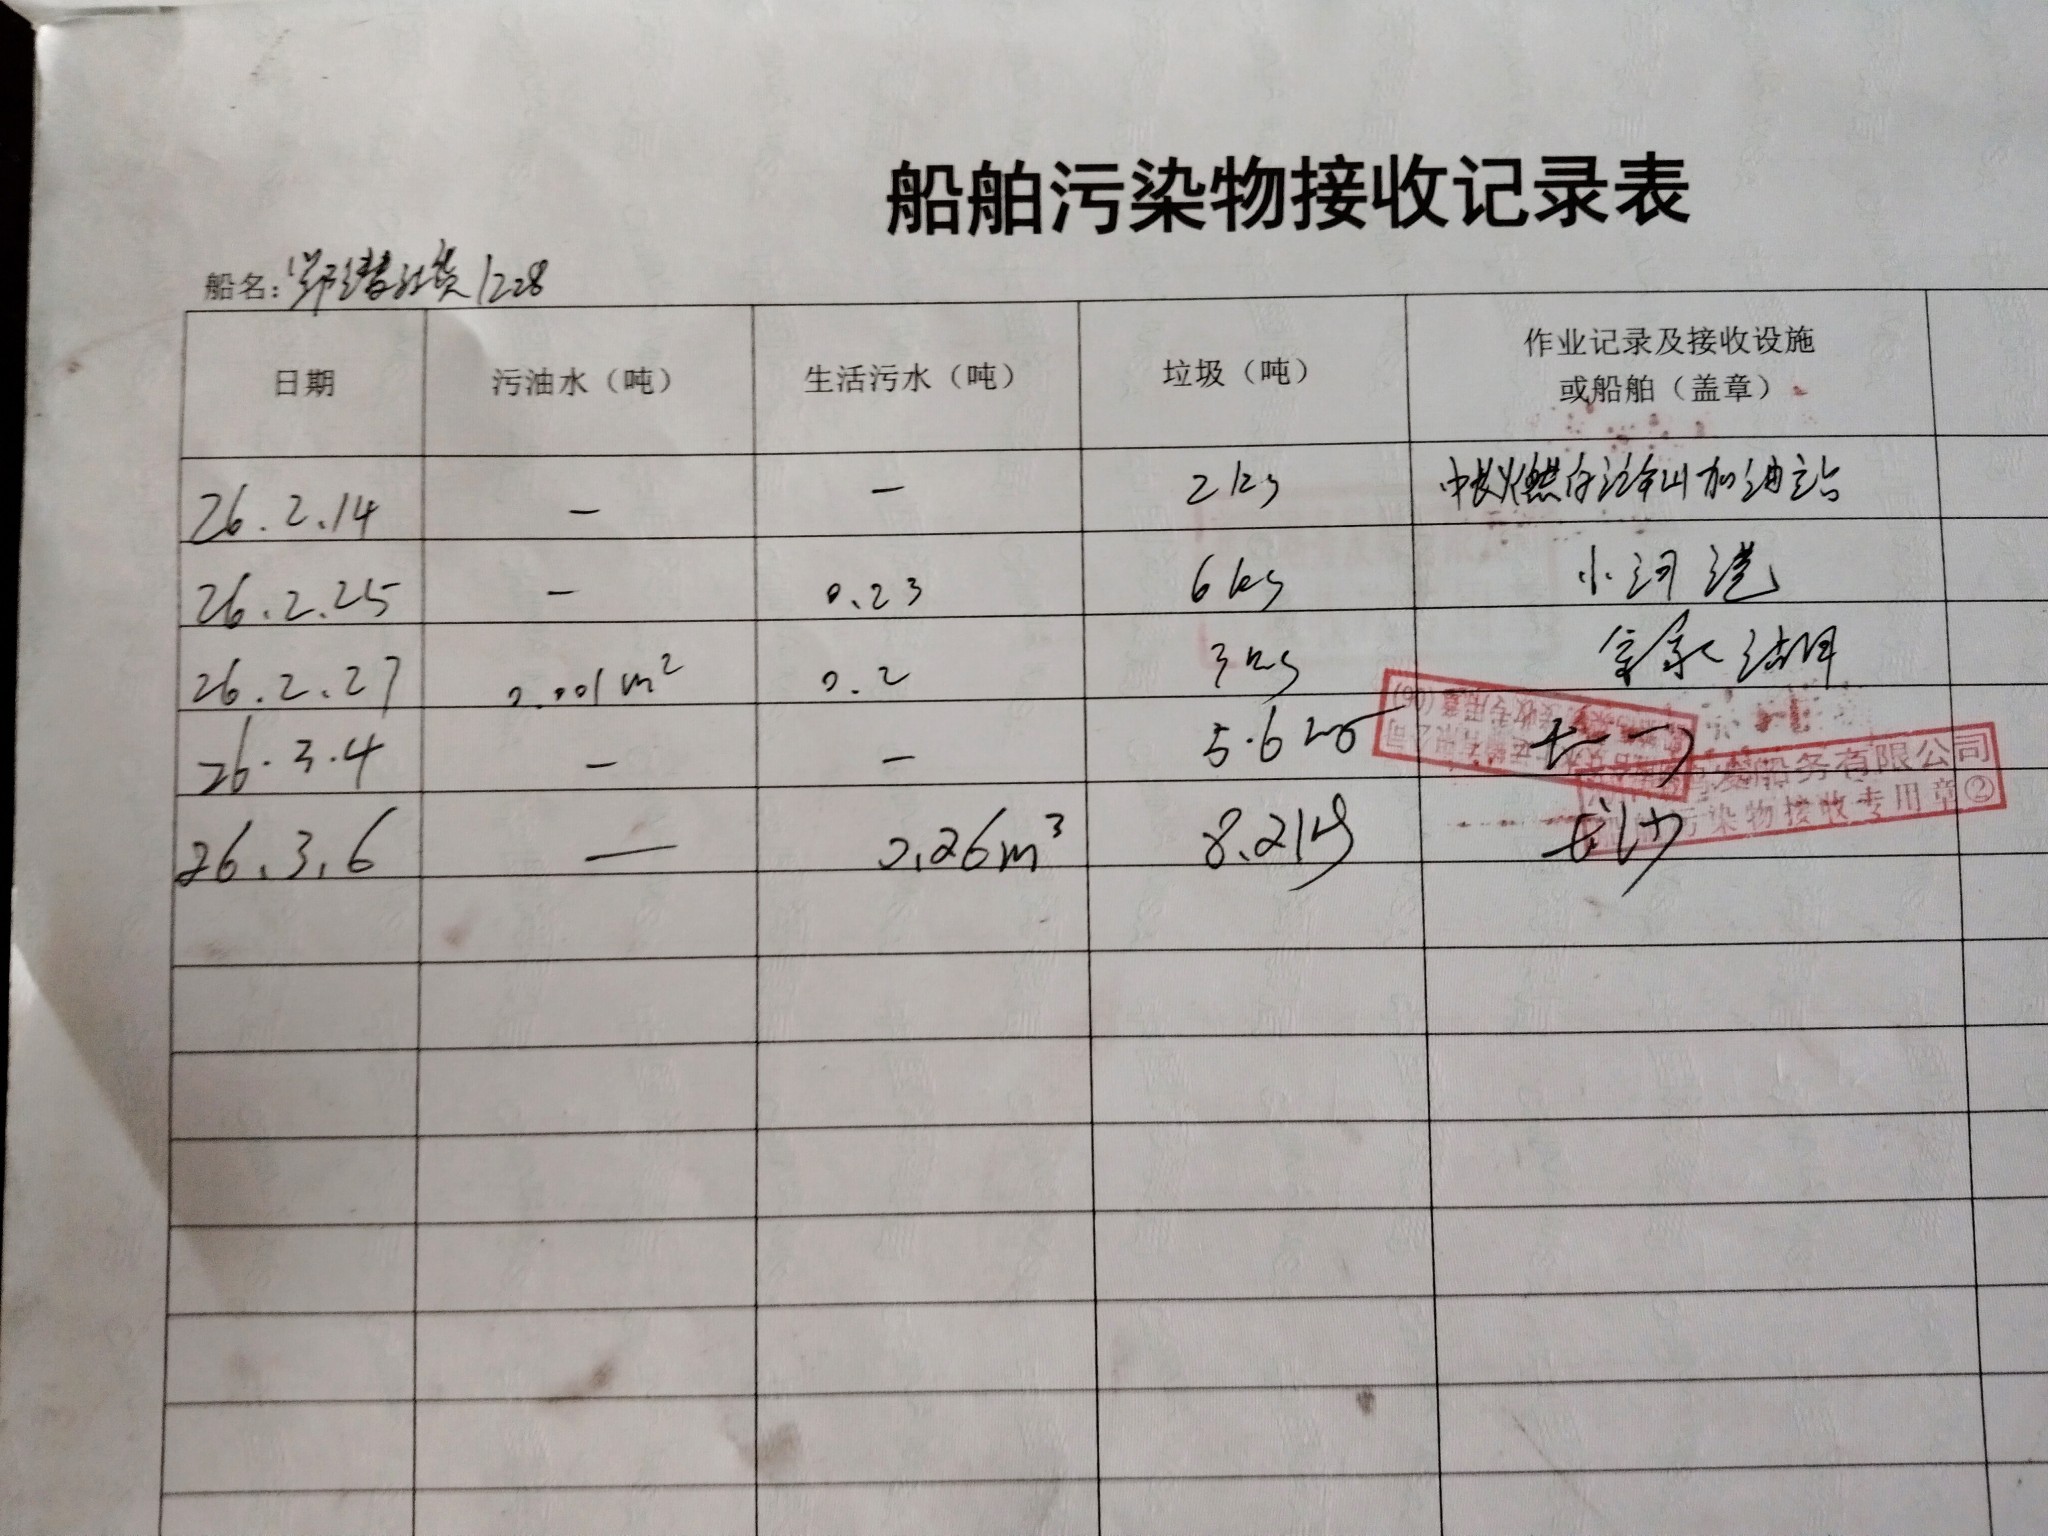 船舶污染物接收记录表
船名： 1228
日期 污油水（吨） 生活污水（吨） 垃圾（吨） 作业记录及接收设施
或船舶（盖章）
26.2.14 — — 2kg 加油站
26.2.25 — 0.23 6kg 小河港
26.2.27 0.001m² 0.2 3kg
26.3.4 — — 5.6
船务有限公司
污染物接收专用章②
26.3.6 — 0.26m³ 8.21kg 长沙